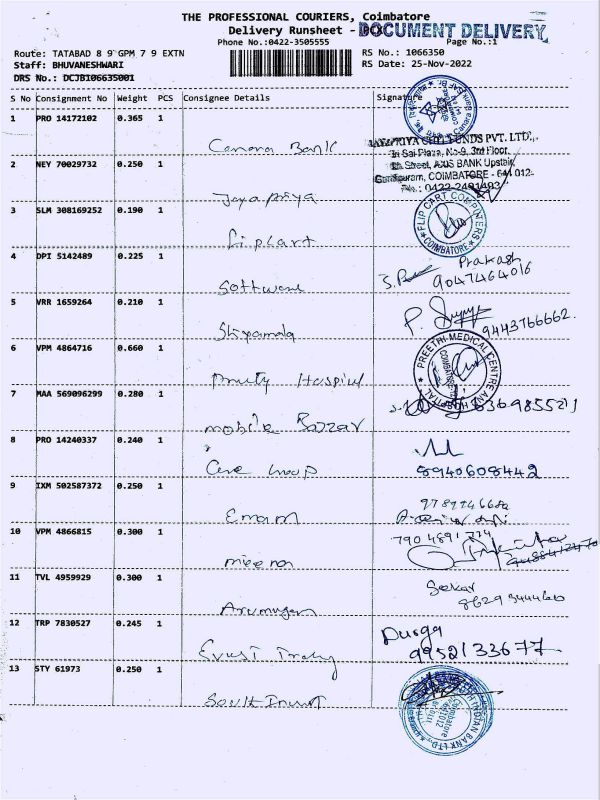 THE PROFESSIONAL COURIERS, Coimbatore
Delivery Runsheet - DOCUMENT DELIVERY
Phone No.:0422-3505555 Page No.:1
Route: TATABAD 8 9 GPM 7 9 EXTN RS No.: 1066350
Staff: BHUVANESHWARI RS Date: 25-Nov-2022
DRS No.: DCJB106635001
S No Consignment No Weight PCS Consignee Details Signature
1 PRO 14172102 0.365 1
Canara Bank
CHIT FUNDS PVT. LTD.,
Sri Sai Plaza, No-9, 3rd Floor,
Street, AXIS BANK Upstair,
COIMBATORE - 641 012.
Ph.: 0422-2491493
2 NEY 70029732 0.250 1
Jaya priya
3 SLM 308169252 0.190 1
FLIP CART COMPUTERS
COIMBATORE
Flipkart
4 DPI 5142489 0.225 1
Prakash
Software
9047464016
5 VRR 1659264 0.210 1
Shyamala
9443766662.
6 VPM 4864716 0.660 1
PREETHI MEDICAL CENTRE AND HOSPITAL
Hospital
7 MAA 569096299 0.280 1
mobile Bazzar
8 PRO 14240337 0.240 1
Care Group
8940608442
9 IXM 502587372 0.250 1
Emam
10 VPM 4866815 0.300 1
meena
11 TVL 4959929 0.300 1
Sekar
Arumugam
12 TRP 7830527 0.245 1
Durga
9952133677
13 STY 61973 0.250 1
South
INDIAN BANK LTD.
Coimbatore